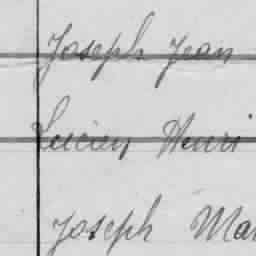 Joseph Jean
Lucien Henri
Joseph Mar